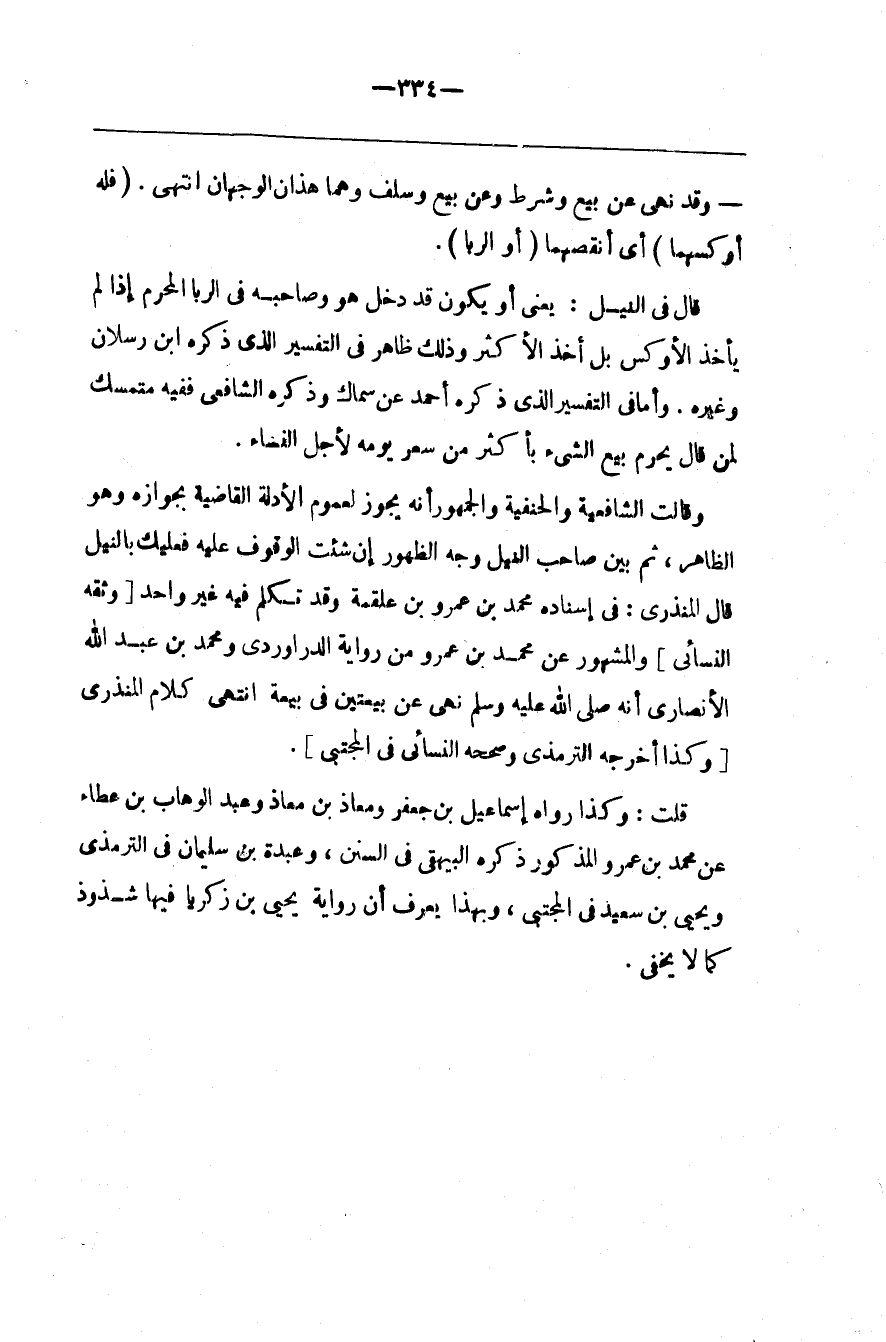 —٣٣٤—
— وقد نهى عن بيع وشرط وعن بيع وسلف وهما هذان الوجهان انتهى . ( فله
أوكسهما ) أى أنقصهما ( أو الربا ) .
قال فى النيـل : يعنى أو يكون قد دخل هو وصاحبـه فى الربا المحرم إذا لم
يأخذ الأوكس بل أخذ الأكثر وذلك ظاهر فى التفسير الذى ذكره ابن رسلان
وغيره . وأما فى التفسير الذى ذكره أحمد عن سماك وذكره الشافعى ففيه متمسك
لمن قال يحرم بيع الشىء بأكثر من سعر يومه لأجل النساء .
وقالت الشافعية والحنفية والجمهور أنه يجوز لعموم الأدلة القاضية بجوازه وهو
الظاهر ، ثم بين صاحب النيل وجه الظهور إن شئت الوقوف عليه فعليك بالنيل
قال المنذرى : فى إسناده محمد بن عمرو بن علقمة وقد تـكلم فيه غير واحد [ وثقه
النسائى ] والمشهور عن محمـد بن عمرو من رواية الدراوردى ومحمد بن عبـد الله
الأنصارى أنه صلى الله عليه وسلم نهى عن بيعتين فى بيعة انتهى كلام المنذرى
[ وكذا أخرجه الترمذى وصححه النسائى فى المجتبى ] .
قلت : وكذا رواه إسماعيل بن جعفر ومعاذ بن معاذ وعبد الوهاب بن عطاء
عن محمد بن عمرو المذكور ذكره البيهقى فى السنن ، وعبدة بن سليمان فى الترمذى
ويحيى بن سعيد فى المجتبى ، وبهذا يعرف أن رواية يحيى بن زكريا فيها شـذوذ
كما لا يخفى .